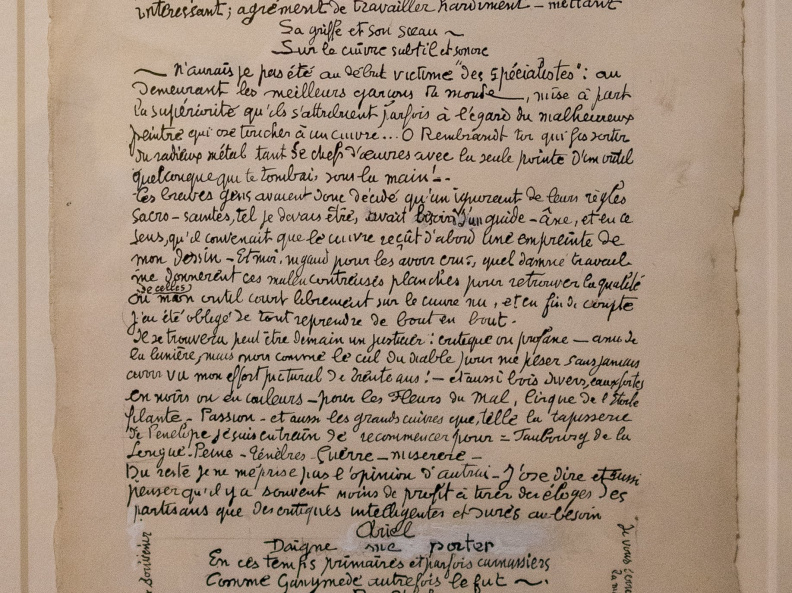 intéressant; agrément de travailler hardiment - mettant
Sa griffe et son sceau ~
Sur le cuivre subtil et sonore
~ N'aurais je pas été au début victime "des spécialistes": au
demeurant les meilleurs garçons du monde, mise à part
la supériorité qu'ils s'attribuent parfois à l'égard du malheureux
peintre qui ose toucher à un cuivre... O Rembrandt toi qui fis sortir
du radieux métal tant de chefs d'œuvres avec la seule pointe d'un outil
quelconque qui te tombait sous la main!..
Ces braves gens avaient donc décidé qu'un ignorant de leurs règles
sacro-saintes, tel je devais être, avait besoin d'un guide-âne, et en ce
sens, qu'il convenait que le cuivre reçût d'abord une empreinte de
mon dessin - Et moi, nigaud pour les avoir crus, quel damné travail
me donnèrent ces malencontreuses planches pour retrouver la qualité
de celles
où mon outil court librement sur le cuivre nu, et en fin de compte
j'ai été obligé de tout reprendre de bout en bout.
Il se trouvera peut être demain un justicier: critique ou profane - ami de
la lumière, mais noir comme le cul du diable pour me peser sans jamais
avoir vu mon effort pictural de trente ans! - et aussi bois divers, eaux fortes
en noirs ou en couleurs - pour les Fleurs du Mal, Cirque de l'Étoile
filante - Passion - et aussi les grands cuivres que, telle la tapisserie
de Pénélope je suis en train de recommencer pour = Faubourg de la
Longue-Peine - Ténèbres - Guerre - miserere -
Du reste je ne méprise pas l'opinion d'autrui - J'ose dire et aussi
penser qu'il y a souvent moins de profit à tirer des éloges des
partisans que des critiques intelligentes et dures au besoin
Ariel
Daigne me porter
En ces temps primaires et parfois carnassiers
Comme Ganymède autrefois le fut ~.
souvenir
Je vous